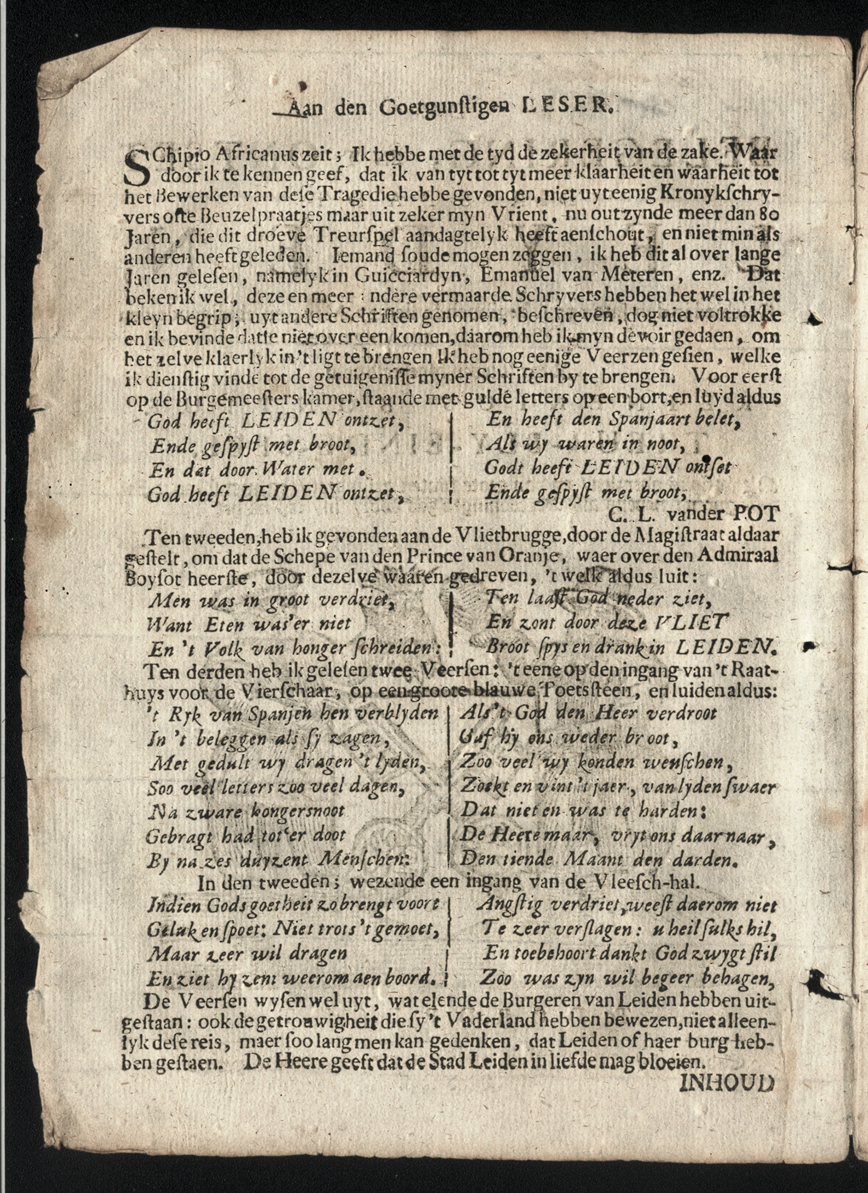 Aan den Goetgunſtigen LESER.
SChipio Africanus zeit; Ik hebbe met de tyd de zekerheit van de zake. Waar
door ik te kennen geef, dat ik van tyt tot tyt meer klaarheit en waarheit tot
het Bewerken van deſe Tragedie hebbe gevonden, niet uyt eenig Kronykſchry-
vers ofte Beuzelpraatjes maar uit zeker myn Vrient, nu out zynde meer dan 80
Jaren, die dit droeve Treurſpel aandagtelyk heeft aenſchout, en niet min als
anderen heeft geleden. Iemand ſoude mogen zeggen, ik heb dit al over lange
Jaren geleſen, namelyk in Guicciardyn, Emanuel van Meteren, enz. Dat
beken ik wel, deze en meer ndere vermaarde Schryvers hebben het wel in het
kleyn begrip, uyt andere Schriften genomen, beſchreven, dog niet voltrokke
en ik bevinde datſe niet over een komen, daarom heb ik myn devoir gedaen, om
het zelve klaerlyk in 't ligt te brengen Ik heb nog eenige Veerzen geſien, welke
ik dienſtig vinde tot de getuigeniſſe myner Schriften by te brengen. Voor eerſt
op de Burgemeeſters kamer, ſtaande met guldē letters op een bort, en luyd aldus
God heeft LEIDEN ontzet,
Ende geſpyſt met broot,
En dat door Water met.
God heeft LEIDEN ontzet,
En heeft den Spanjaart belet,
Als wy waren in noot,
Godt heeft LEIDEN ontſet
Ende geſpyſt met broot,
C. L. vander POT
Ten tweeden, heb ik gevonden aan de Vlietbrugge, door de Magiſtraat aldaar
geſtelt, om dat de Schepe van den Prince van Oranje, waer over den Admiraal
Boyſot heerſte, door dezelve waaren gedreven, 't welk aldus luit:
Men was in groot verdriet,
Want Eten was'er niet
En 't Volk van honger ſchreiden:
Ten laaſt God neder ziet,
En zont door deze VLIET
Broot ſpys en drank in LEIDEN.
Ten derden heb ik geleſen twee Veerſen: 't eene op den ingang van 't Raat-
huys voor de Vierſchaar, op een groote blauwe Toetsſteen, en luiden aldus:
't Ryk van Spanjen hen verblyden
In 't beleggen als ſy zagen,
Met gedult wy dragen 't lyden,
Soo veel letters zoo veel dagen,
Na zware hongersnoot
Gebragt had tot'er doot
By na zes duyzent Menſchen:
Als't God den Heer verdroot
Gaf hy ons weder broot,
Zoo veel wy konden wenſchen,
Zoekt en vint 't jaer, van lyden ſwaer
Dat niet en was te harden:
De Heere maar, vryt ons daar naar,
Den tiende Maant den darden.
In den tweeden; wezende een ingang van de Vleeſch-hal.
Indien Gods goetheit zo brengt voort
Geluk en ſpoet: Niet trots 't gemoet,
Maar zeer wil dragen
En ziet hy zent weerom aen boord.
Angſtig verdriet, weeſt daerom niet
Te zeer verſlagen: u heil ſulks hil,
En toebehoort dankt God zwygt ſtil
Zoo was zyn wil begeer behagen,
De Veerſen wyſen wel uyt, wat elende de Burgeren van Leiden hebben uit-
geſtaan: ook de getrouwigheit die ſy 't Vaderland hebben bewezen, niet alleen-
lyk deſe reis, maer ſoo lang men kan gedenken, dat Leiden of haer burg heb-
ben geſtaen. De Heere geeft dat de Stad Leiden in liefde mag bloeien.
INHOUD